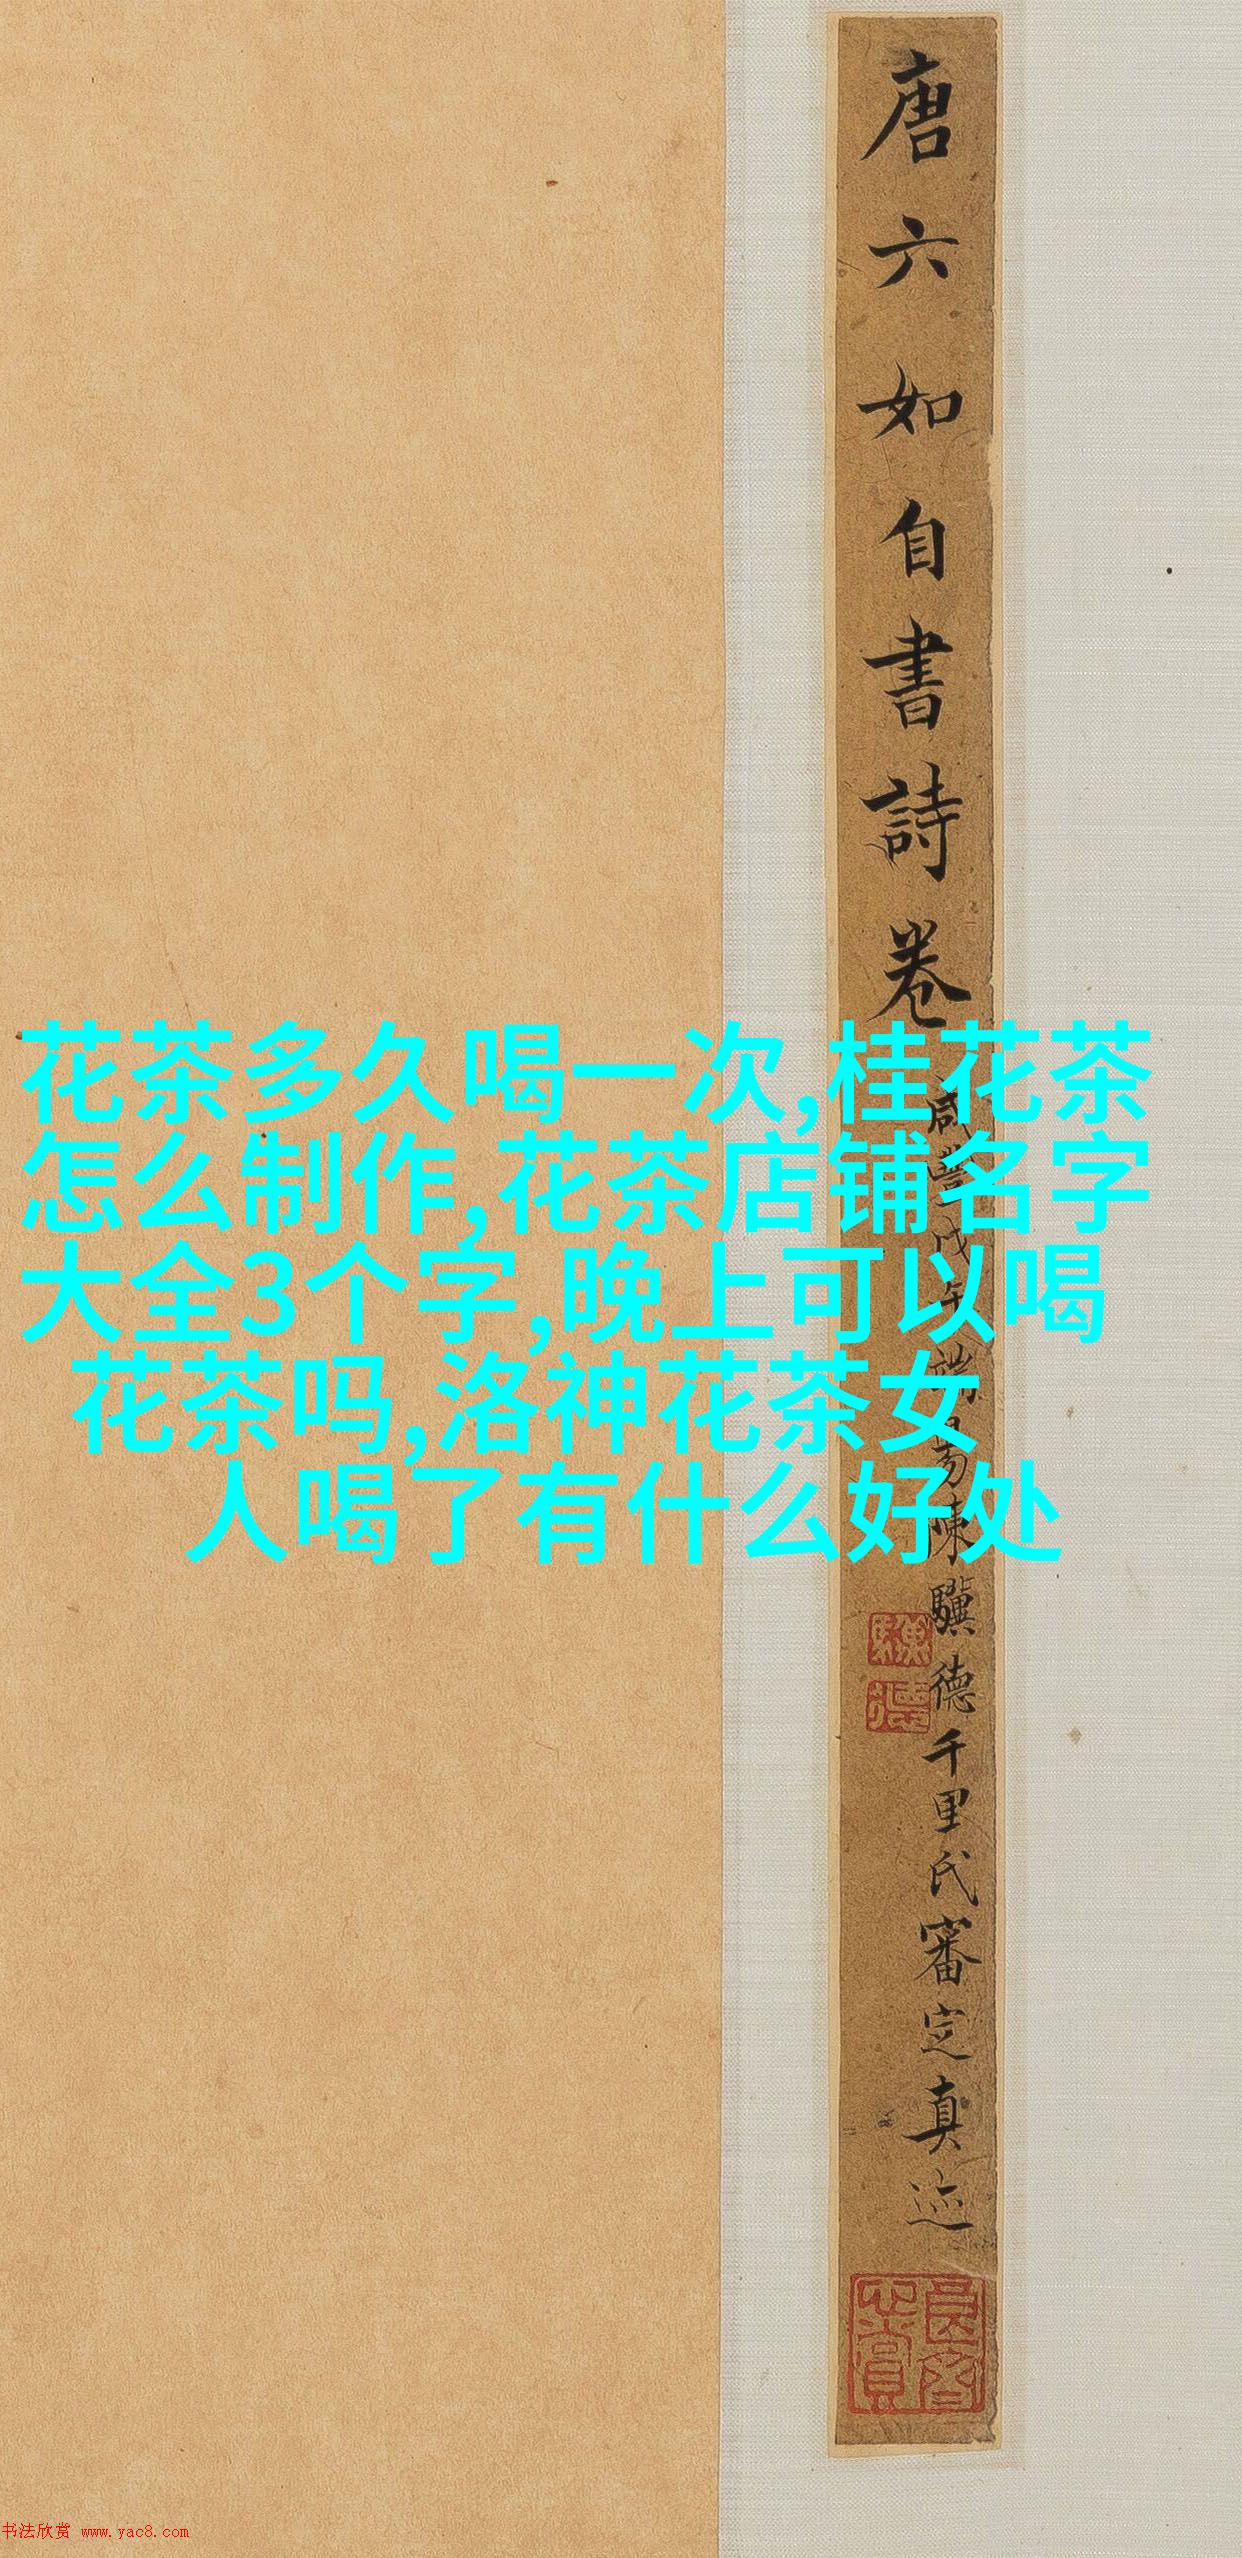 唐六如自書詩卷
驥德千里氏審定真迹
驥德
花茶多久喝一次,桂花茶
怎么制作,花茶店铺名字
大全3个字,晚上可以喝
花茶吗,洛神花茶女
人喝了有什么好处
书法欣赏 www.yac8.com